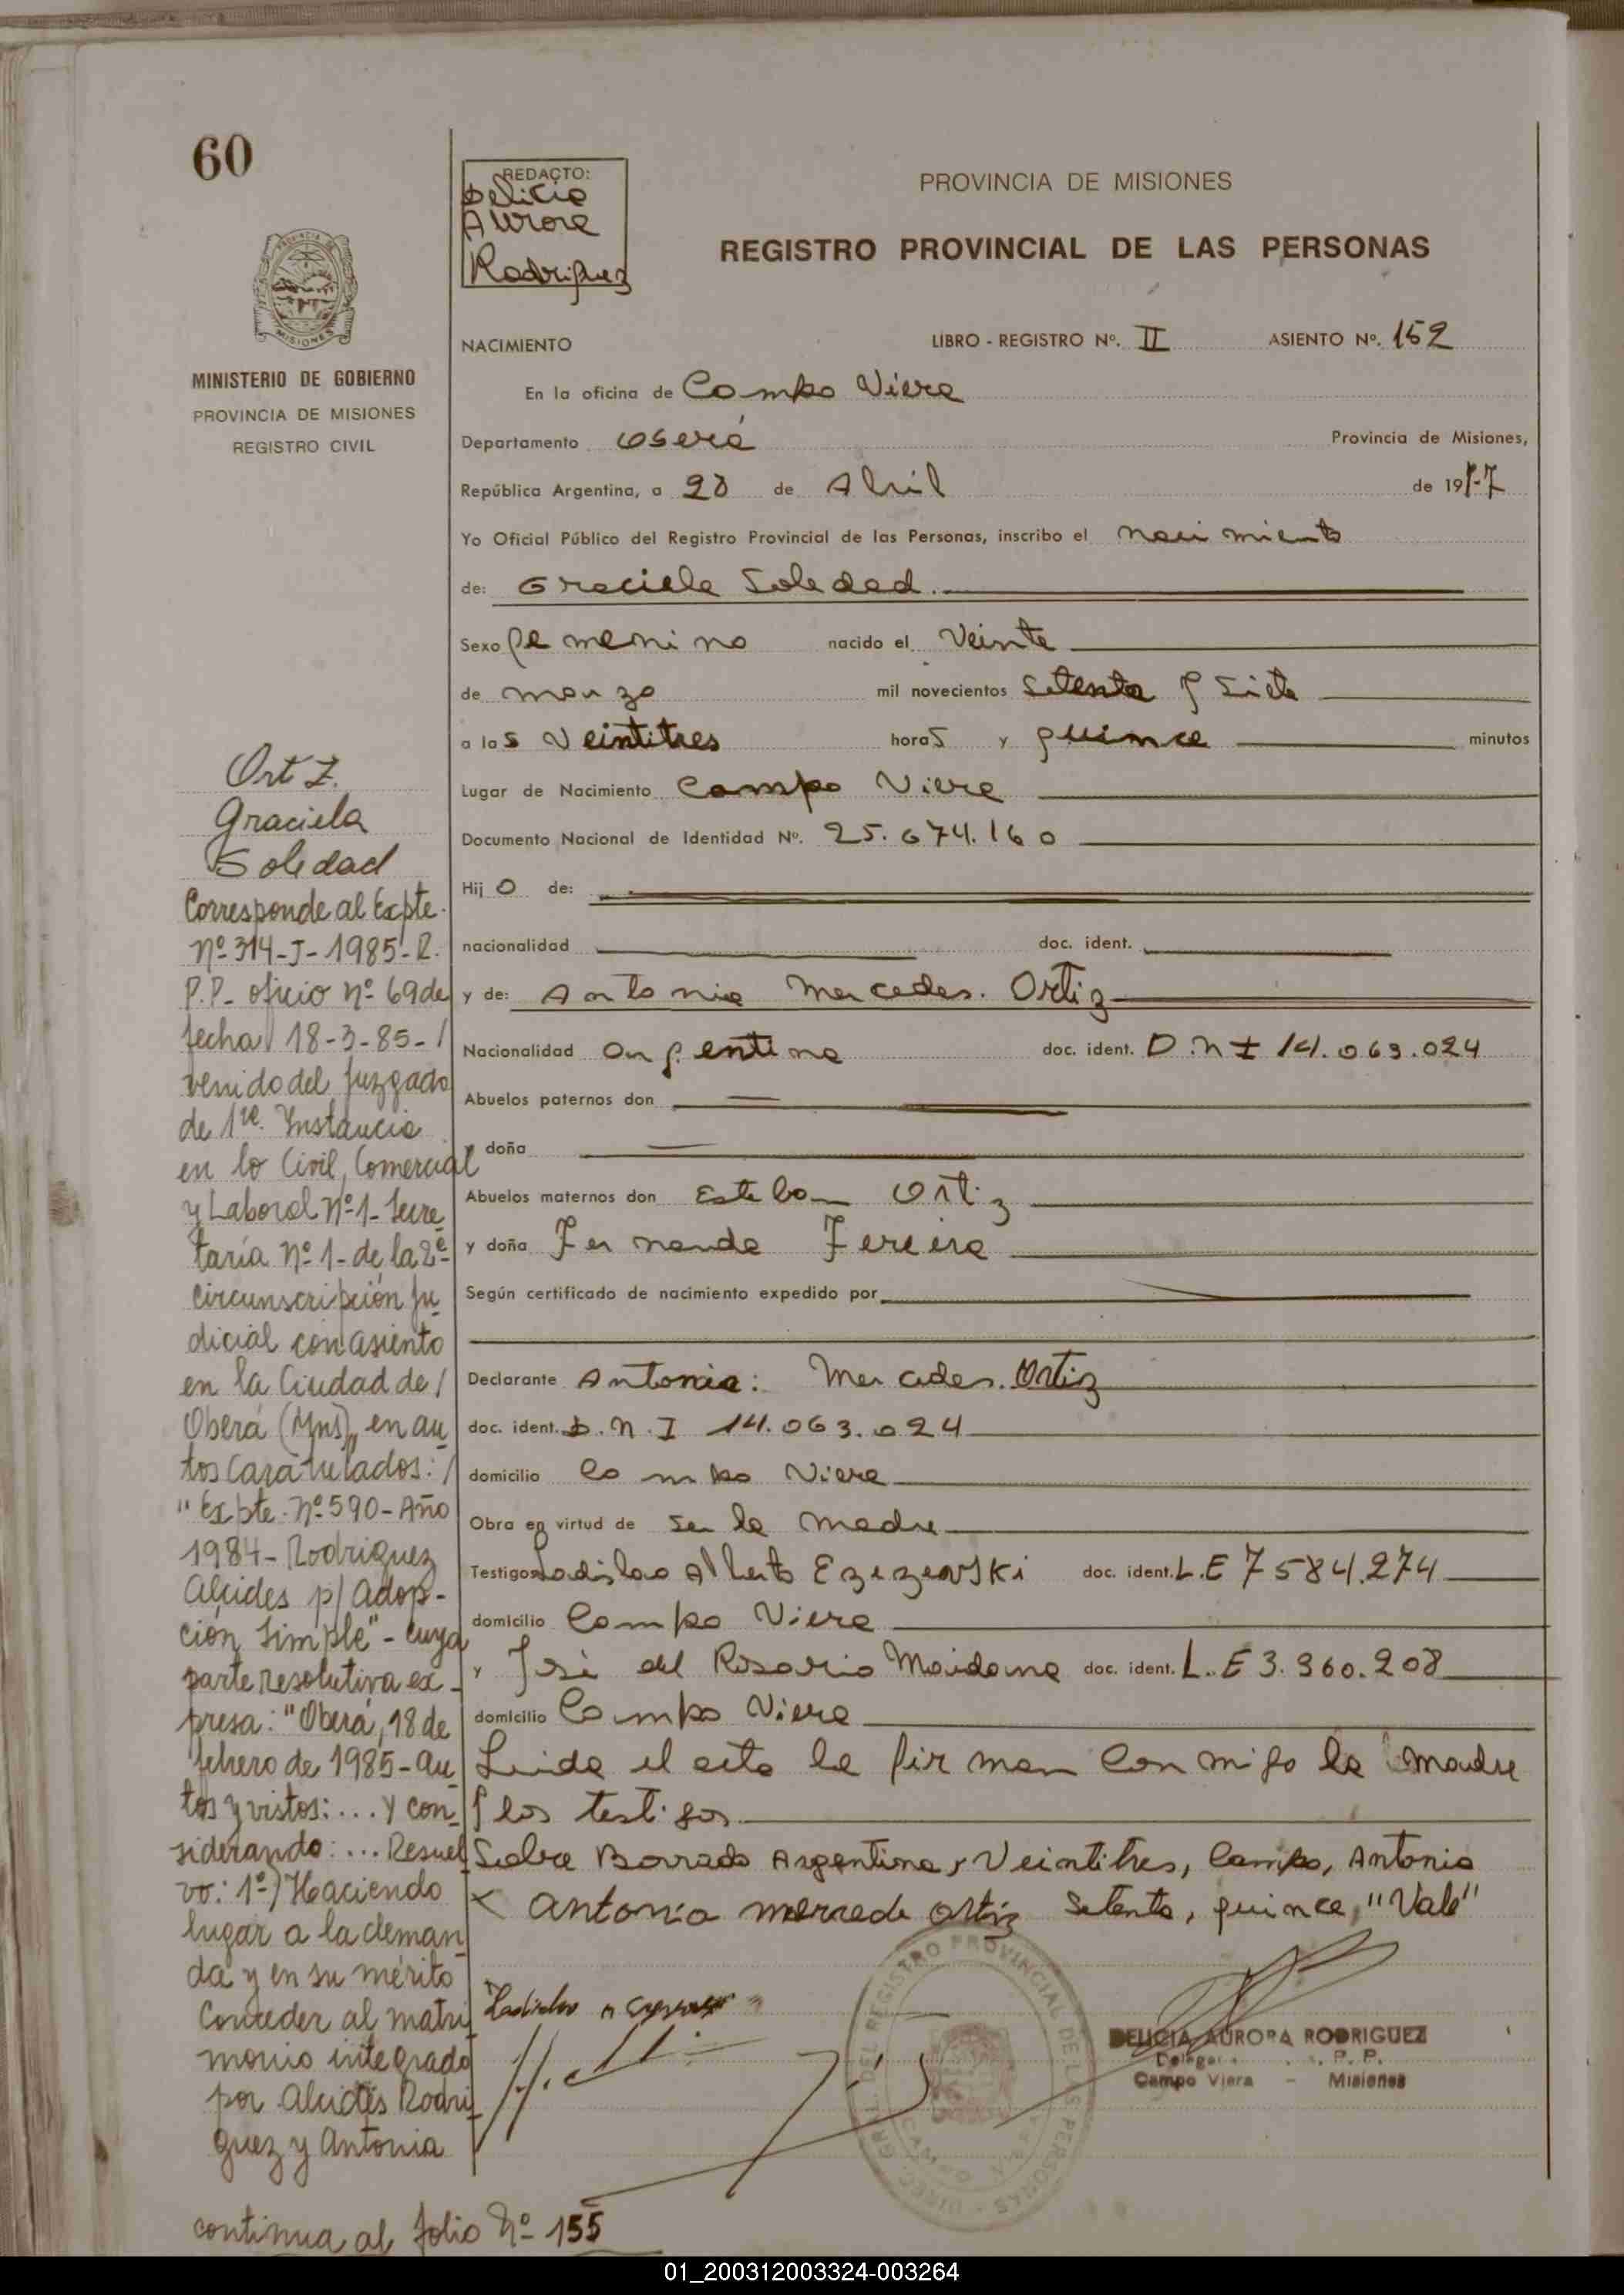 60
REDACTO:
Delicia
Aurora
Rodriguez
PROVINCIA DE MISIONES
REGISTRO PROVINCIAL DE LAS PERSONAS
MISIONES
MINISTERIO DE GOBIERNO
PROVINCIA DE MISIONES
REGISTRO CIVIL
NACIMIENTO LIBRO - REGISTRO Nº. II ASIENTO Nº. 152
En la oficina de Campo Viera
Departamento Oberá Provincia de Misiones,
República Argentina, a 28 de Abril de 1977
Yo Oficial Público del Registro Provincial de las Personas, inscribo el nacimiento
de: Graciela Soledad.
Sexo femenino nacido el Veinte
de marzo mil novecientos Setenta y Siete
a las Veintitres horas y quince minutos
Lugar de Nacimiento Campo Viera
Documento Nacional de Identidad Nº. 25.674.160
Hij o de:
nacionalidad doc. ident.
y de: Antonia Mercedes. Ortiz
Nacionalidad Argentina doc. ident. D.N.I 14.063.024
Abuelos paternos don
y doña
Abuelos maternos don Esteban Ortiz
y doña Fernanda Fereira
Según certificado de nacimiento expedido por
Declarante Antonia: Mercedes. Ortiz
doc. ident. D.N.I 14.063.024
domicilio Campo Viera
Obra en virtud de ser la madre
Testigos Ladislao Alberto doc. ident. L.E 7584.274
domicilio Campo Viera
y José del Rosario Maidana doc. ident. L.E 3.960.208
domicilio Campo Viera
Leida el acta la firman conmigo la madre
y los testigos
Sobre Borrado Argentina, Veintitres, Campo, Antonia
X antonia mercede ortiz Setenta, quince, "Vale"
DELICIA AURORA RODRIGUEZ
R. P. P.
Campo Viera - Misiones
Ortiz.
Graciela
Soledad
Corresponde al Expte.
Nº 314-J-1985-R.
P.P- oficio Nº 69 de
fecha 18-3-85- /
venido del Juzgado
de 1ra. Instancia
en lo Civil, Comercial
y Laboral Nº 1- Secre-
taría Nº 1- de la 2ª
circunscripción Ju-
dicial con asiento
en la Ciudad de /
Oberá (Mns), en au-
tos caratulados: /
"Expte. Nº 590-Año
1984- Rodriguez
Alcides p/ Adop-
ción Simple"- cuya
parte resolutiva ex-
presa: "Oberá, 18 de
febrero de 1985- Au-
tos y vistos: ... Y con-
siderando: ... Resuel-
vo: 1º-) Haciendo
lugar a la deman-
da y en su mérito
Conceder al matri-
monio integrado
por Alcides Rodri-
guez y Antonia
continua al folio Nº 155
01_200312003324-003264